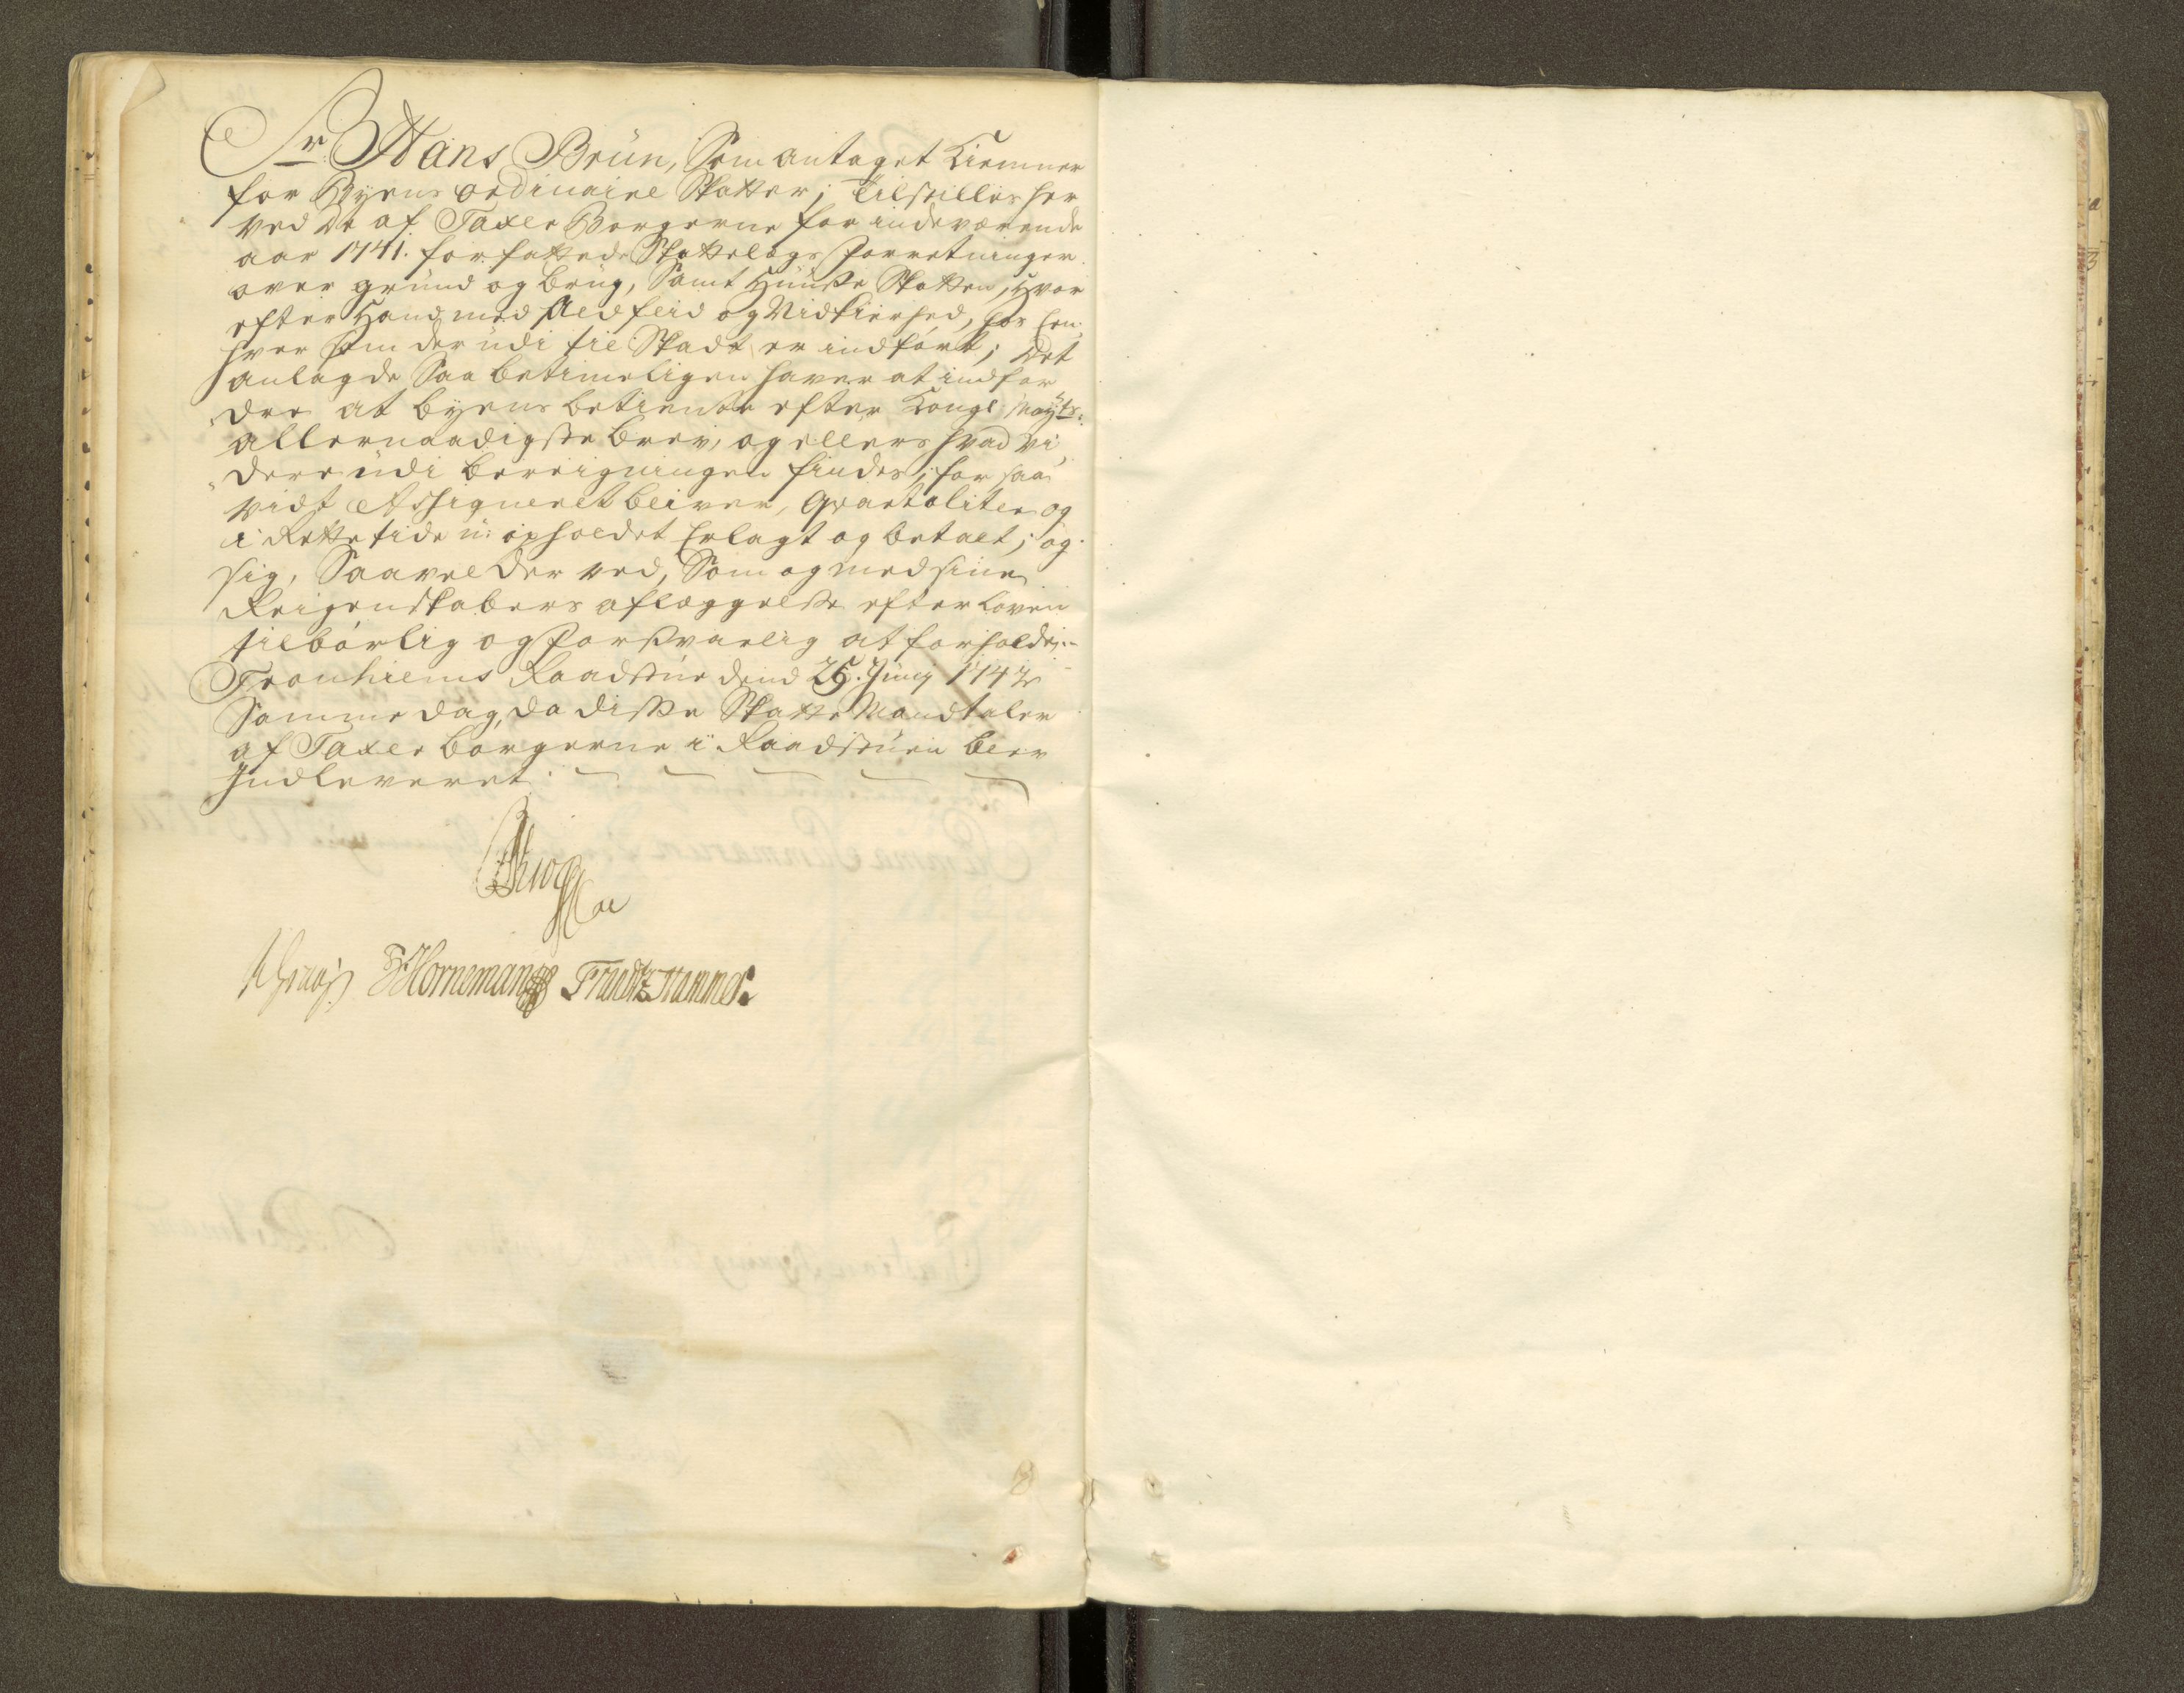 Sr. Hans Brün, Som antaget Kiemner
for Byens ordinaire Skatter; Tilstilles her
ved de af Taxer Borgerne for indeværende
aar 1741. forfattede Skattelags Forretninger
over grund og brug, Samt Huuse Skatten, Hvor
efter Hand med fleid og Vidkierhed, hos En
hver som der udi til Skadt er indført; Det
anlagde Saa betimeligen haver at indfor
dre at byens betiente efter Kongl: Mayts:
allernaadigste brev, og ellers hvad vi
dere udi bereigningen findes, for saa
vidt Assigneret bliver, Qvartaliter og
i Rette tide u: opholdet Erlagt og betalt; og
sig, Saavel der ved, Som og med sine
Reigenskabers aflæggelse efter loven
tilbørlig og forsvarlig at forholde.
Tronhiems Raadstue dend 25. Junij 1742
Samme dag, da disse Skatte Mandtaler
af Taxer borgerne i Raadstuen blev
Indleveret.
Hornemann Fridr Hammer